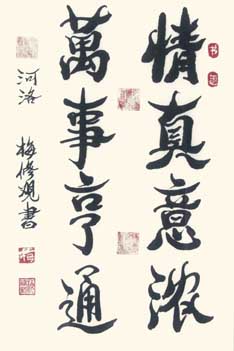 情真意浓
萬事亨通
河洛 梅修观書